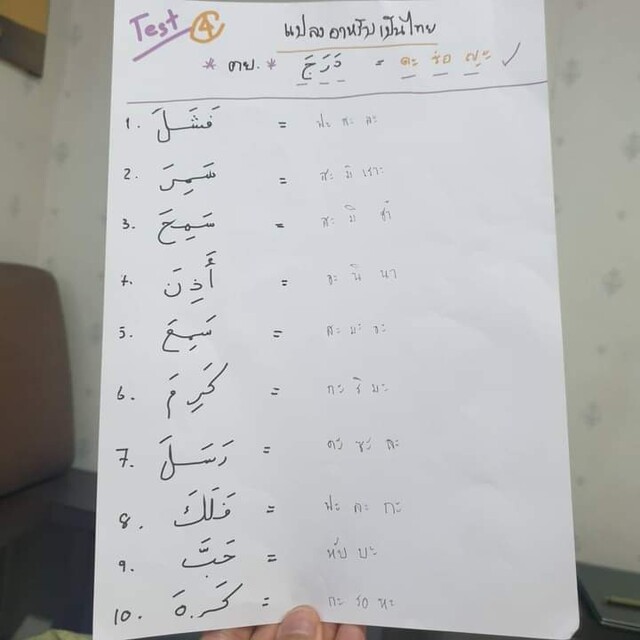 Test 4 แปลงอาหรับเป็นไทย
* ตย. * دَرَجَ = ดะ รอ ญะ ✓
1. فَشَلَ = ฟะ ชะ ละ
2. سَمِرَ = สะ มิ เราะ
3. سَمِحَ = สะ มิ ฮา
4. أَذِنَ = อะ นิ นา
5. سَمِعَ = สะ มะ อะ
6. كَرِمَ = กะ ริ มะ
7. رَسَلَ = ละ
8. فَلَكَ = ฟะ ละ กะ
9. حَبَّ = หับ บะ
10. كَرِهَ = กะ รอ หะ